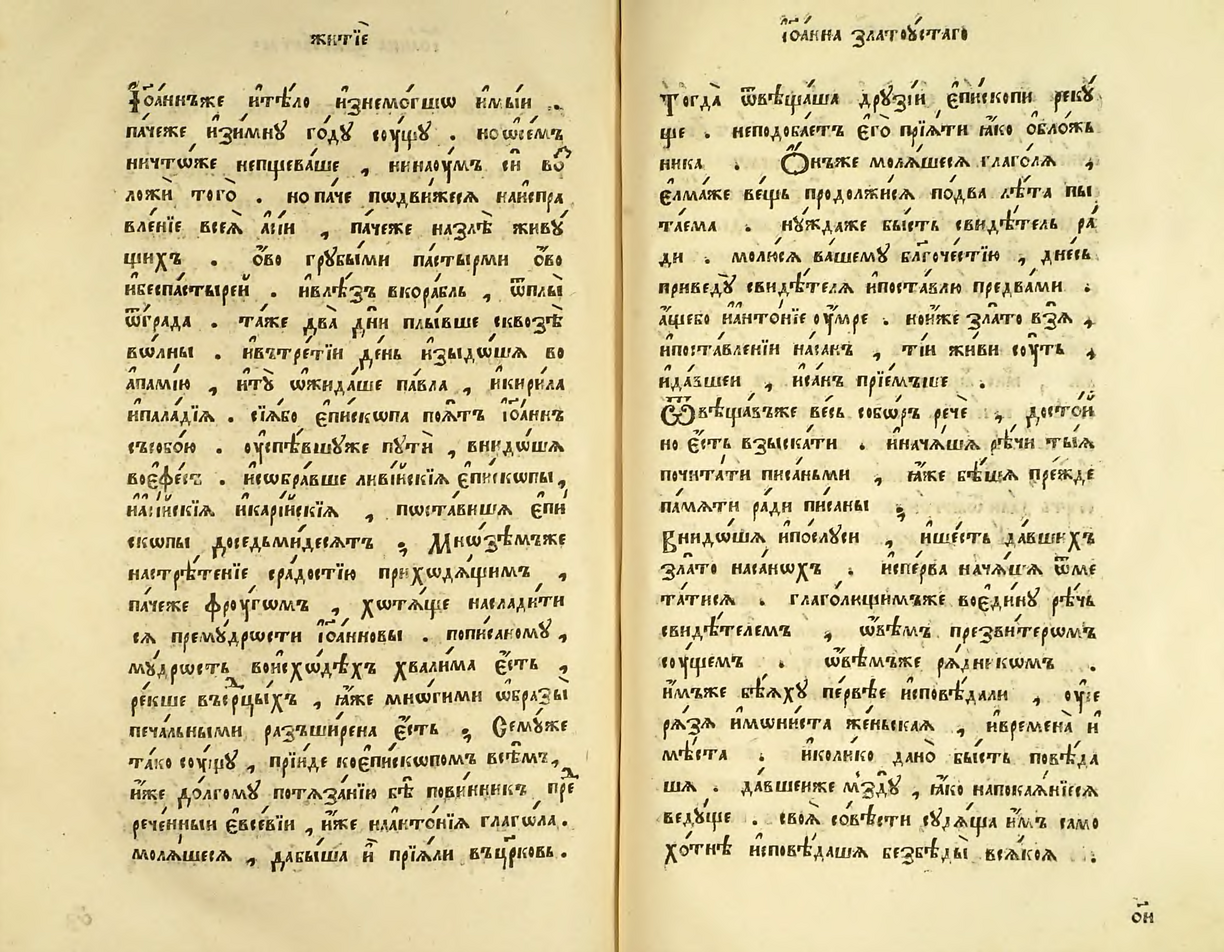 житїе
Їѡа́ннъже и҆тѣ́ло и҆знемо́гшѡ и҆мы́и .
па́чеже и҆зи́мнꙋ го́дꙋ сꙋ́щꙋ . но ѡ҆се́мъ
ничто́же непщева́ше , нинаоу́мъ сѝ во
ложѝ того̀ . но па́че пѡдви́жеся наи҆спра
вле́нїе всея̀ а҆сі́и , па́чеже назлѣ̀ живꙋ́
щихъ . ѻ҆́во грꙋ́быми па́стырми ѻ҆́во
и҆беспа́стырей . и҆влѣ́зъ вкора́бль , ѿплы̀
ѿгра́да . та́же два̀ дн҃и плы́вше сквозѣ̀
во́лны . и҆втре́тїи де́нь и҆зыдо́шѧ во
а҆памі́ю , и҆тꙋ̀ ѡ҆жида́ше па́вла , и҆кири́ла
и҆пала́дїѧ . сїѧ́бо є҆пи́скѡпа поѧ́тъ і҆ѡа́ннъ
съсобо́ю . оу҆спѣ́вшꙋже пꙋтѝ , внидо́шѧ
воє҆фе́съ . и҆собра́вше ливі́искїѧ є҆пи́скѡпы ,
на҆сі́искїѧ и҆карі́искїѧ , пѡста́вишѧ є҆пи
скѡпы до седьми́десѧтъ ; Мно́зѣмъже
настрѣ́тенїе сра́достїю приходѧ́щимъ ,
па́чеже фроу́гѡмъ , хотѧ́ще наслади́ти
сѧ премꙋ́дрости і҆ѡа́нновы . пописа́номꙋ ,
мꙋ́дрость воисхо́дѣхъ хвали́ма є҆́сть ,
ре́кше въсрⷣцы́хъ , ꙗ҆́же мно́гими ѡ҆́бразы
печа́льными разъши́рена є҆́сть ; Семꙋ́же
та́ко сꙋ́щꙋ , прїи́де коє҆пи́скѡпомъ всѣ́мъ ,
и҆́же до́лгомꙋ потѧза́нїю бѣ̀ пови́нникъ пре
рече́нныи є҆все́вїи , и҆́же наа҆нто́нїѧ глаго́ла .
молѧ́шесѧ , дабы́ша и҆̀ прїѧ́ли въцр҃ковь .
і҆ѡа́нна златоꙋ́стаго
Тогда̀ ѿвѣща́ша дрꙋзі́и є҆пи́скопи рекꙋ́
ще . неподоба́етъ є҆го̀ прїѧ́ти ꙗ҆́ко ѻ҆бо́лжъ
ника . Ѻ҆́нъже молѧ́шесѧ глаго́лѧ ,
є҆лма́же ве́щь продолжи́сѧ по́два лѣ́та пы
та́ема . нꙋ́ждаже бы́сть свидѣ́тель ра́
ди . молю́сѧ ва́шемꙋ бл҃гоче́стїю , дне́сь
приведꙋ̀ свидѣ́телѧ и҆поста́влю предва́ми .
а҆́щебо и҆а҆нто́нїе оу҆́мре . но и҆́же зла́то взѧ̀ ,
и҆поставле́нїи наса́нъ , ті́и жи́ви сꙋ́ть ,
и҆да́вшеи , и҆са́нъ прїе́мъше .
Ѿвѣща́въже ве́сь собо́ръ речѐ ; досто́и
но є҆́сть взыска́ти . и҆нача́шѧ рѣ́чи ты́ѧ
почита́ти писа́ньми , ꙗ҆́же бѣ́шѧ пре́жде
па́мѧти ра́ди пи́саны ;
Внидо́шѧ и҆по́слꙋси , и҆ше́сть да́вшихъ
зла́то наса́нѡхъ . и҆спе́рва нача́шѧ ѿме
та́тисѧ . глаго́лищимъже воє҆ди́нꙋ рѣ́чь
свидѣ́телемъ , ѡ҆вѣ́мъ презви́терѡмъ
сꙋ́щемъ . ѡ҆вѣ́мъже рѧ́дникѡмъ .
и҆́мъже бѣ́ѧхꙋ пе́рвѣе и҆сповѣ́дали , оу҆се
рѧ́зѧ и҆мѡни́ста же́ньскаѧ , и҆времена̀ и҆
мѣ́ста . и҆коли́ко дано̀ бы́сть повѣ́да
шѧ . да́вшеиже мздꙋ̀ , ꙗ҆́ко напокаѧ́нїесѧ
ведꙋ́ще . своѧ̀ со́вѣсти сꙋдѧ́ща и҆́мъ само
хо́тнѣ и҆сповѣ́дашѧ безбѣды̀ всѧ́коѧ .
ѻ҃и